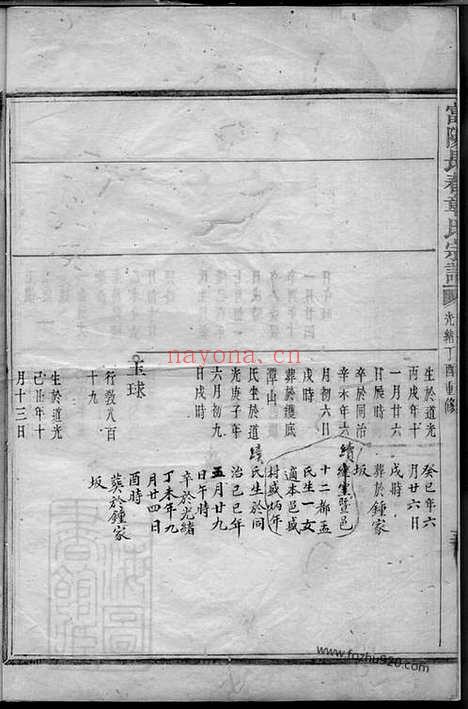 富陽長春章氏宗譜
光緒丁酉重修
生於道光
丙戌年十
一月廿六
日辰時
卒於同治
辛未年六
月初六日
戌時
葬於後底
潭山
氏生於道
光庚子年
六月初九
日戌時
玉球
行教八百
十九
生於道光
己丑年十
月十三日
癸巳年六
月廿六日
戌時
葬於鍾家
坂
續
十二都孟
氏生一女
適本邑戚
村戚炳年
續
氏生於同
治己巳年
五月廿九
日午時
卒於光緒
丁未年九
月廿四日
酉時
葬於鍾家
坂
nayona.cn
www.fozhu920.com